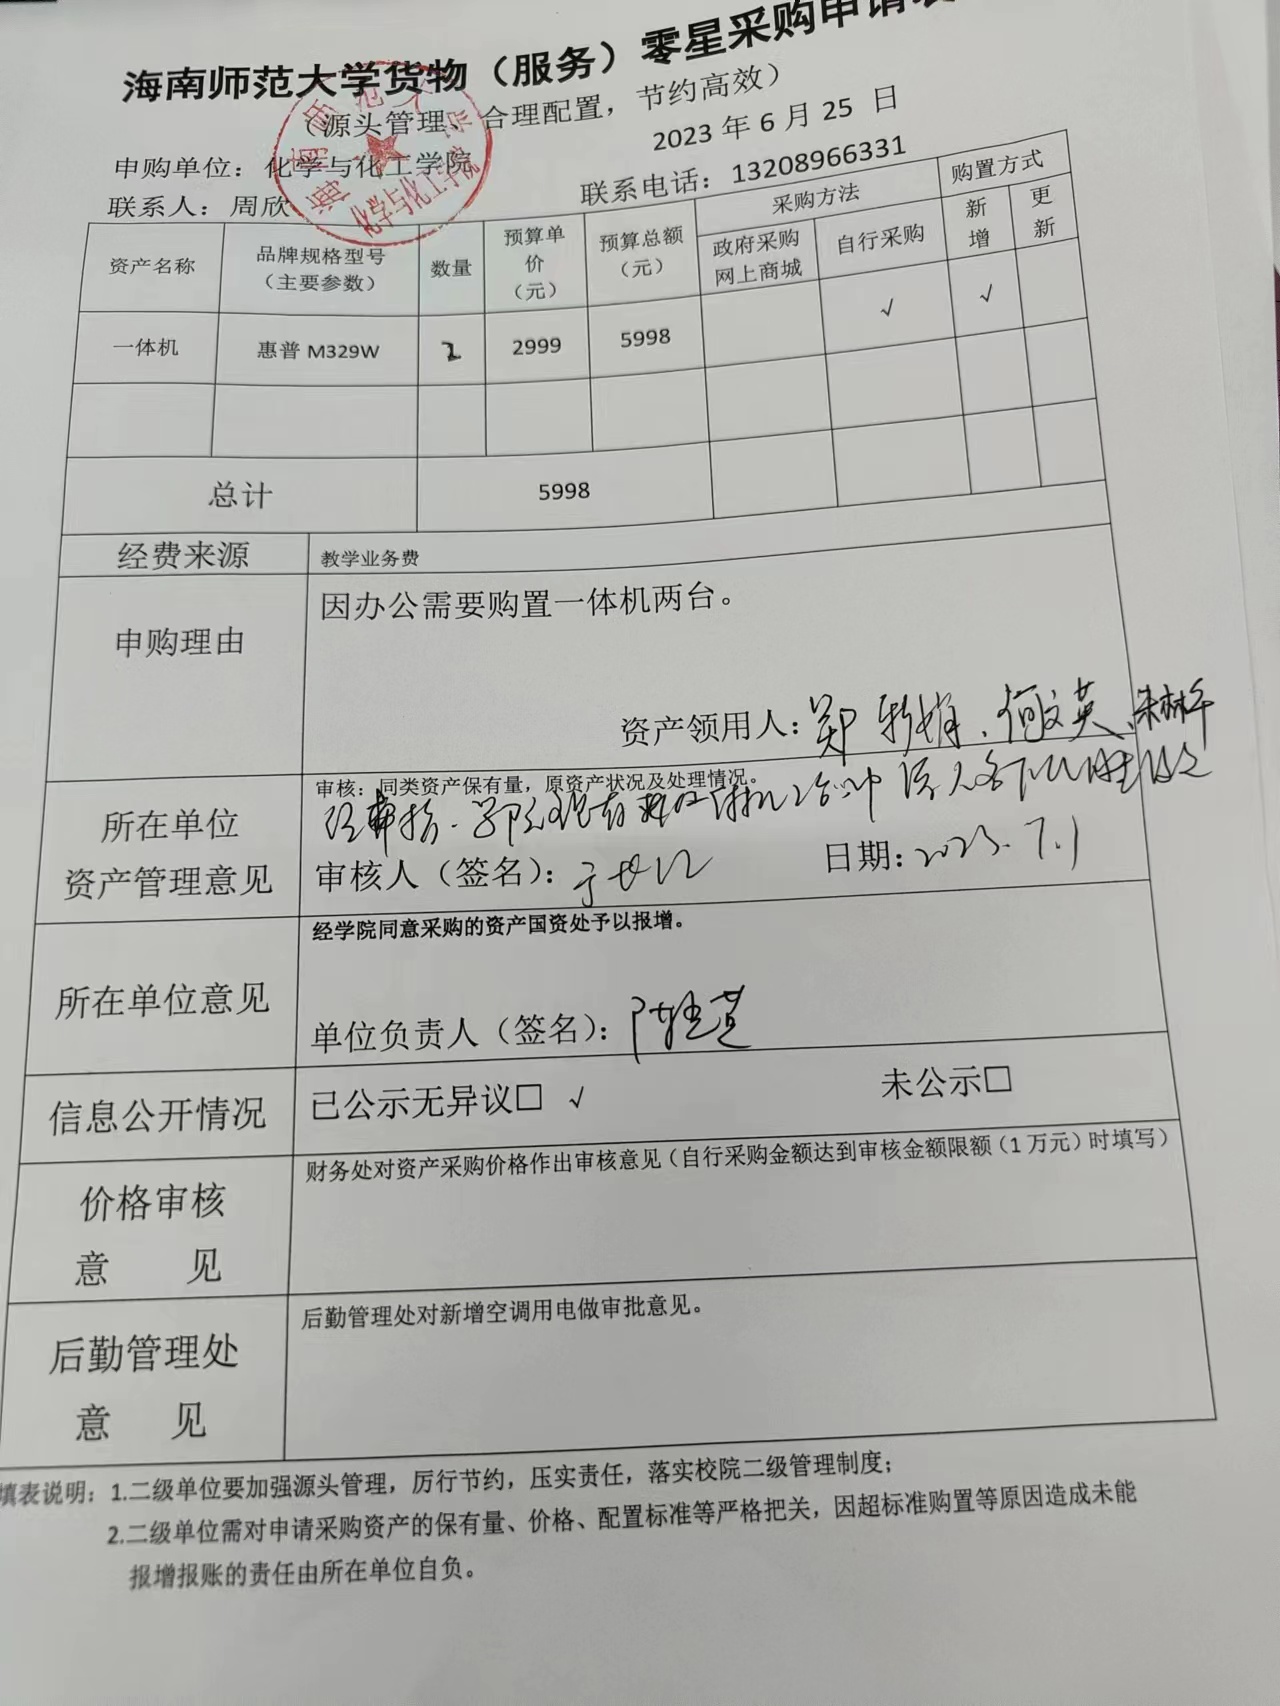 海南师范大学货物（服务）零星采购申请表
（源头管理，合理配置，节约高效）
2023年6月25日
申购单位：化学与化工学院
联系人：周欣
联系电话：13208966331
化学与化工学院
资产名称 品牌规格型号（主要参数） 数量 预算单价（元） 预算总额（元） 采购方法 购置方式
政府采购网上商城 自行采购 新增 更新
一体机 惠普 M329W 2 2999 5998 √ √
总计 5998
经费来源 教学业务费
申购理由 因办公需要购置一体机两台。
资产领用人：郑 何文英、朱林华
所在单位资产管理意见 审核：同类资产保有量，原资产状况及处理情况。
审核人（签名）： 日期：2023.7.1
所在单位意见 经学院同意采购的资产国资处予以报增。
单位负责人（签名）：
信息公开情况 已公示无异议□ √ 未公示□
价格审核意 见 财务处对资产采购价格作出审核意见（自行采购金额达到审核金额限额（1万元）时填写）
后勤管理处意 见 后勤管理处对新增空调用电做审批意见。
填表说明：1.二级单位要加强源头管理，厉行节约，压实责任，落实校院二级管理制度；
2.二级单位需对申请采购资产的保有量、价格、配置标准等严格把关，因超标准购置等原因造成未能
报增报账的责任由所在单位自负。